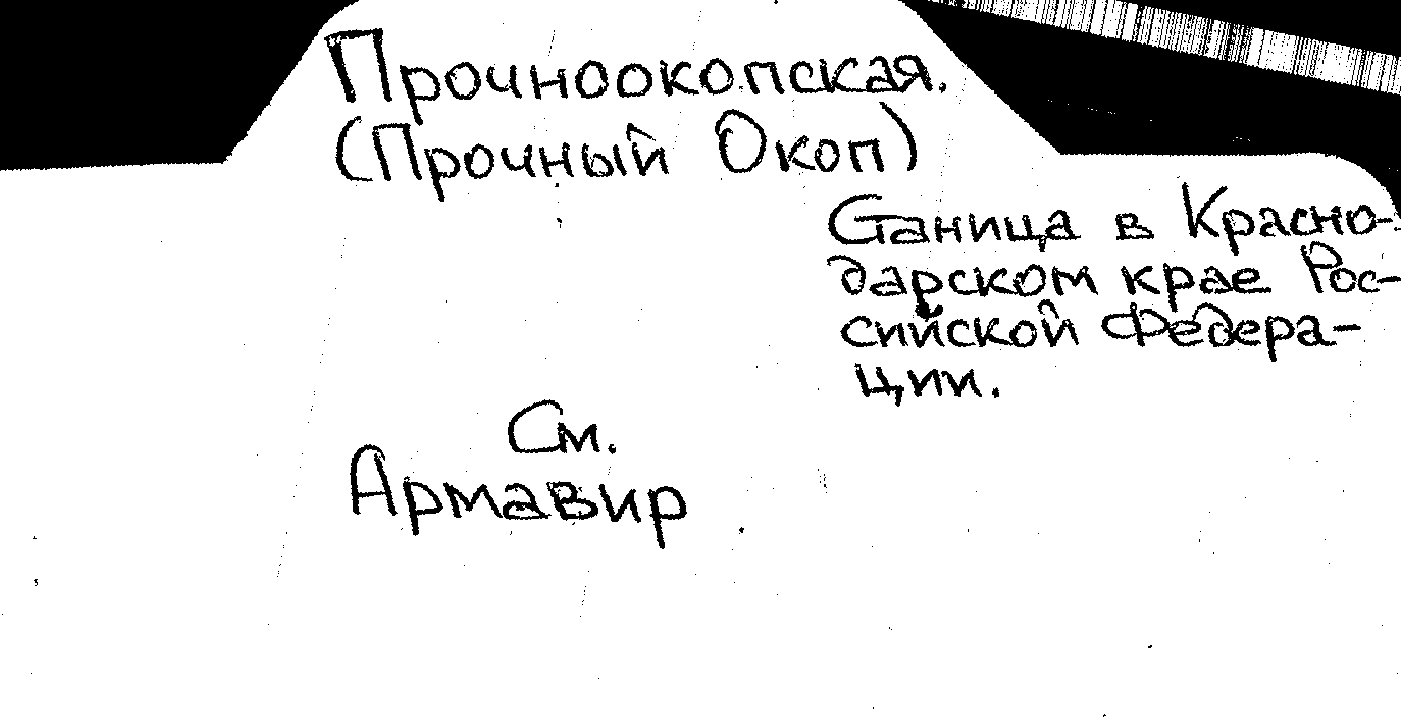 Прочноокопская.
(Прочный Окоп)
Станица в Красно-
дарском крае Рос-
сийской Федера-
ции.
См.
Армавир